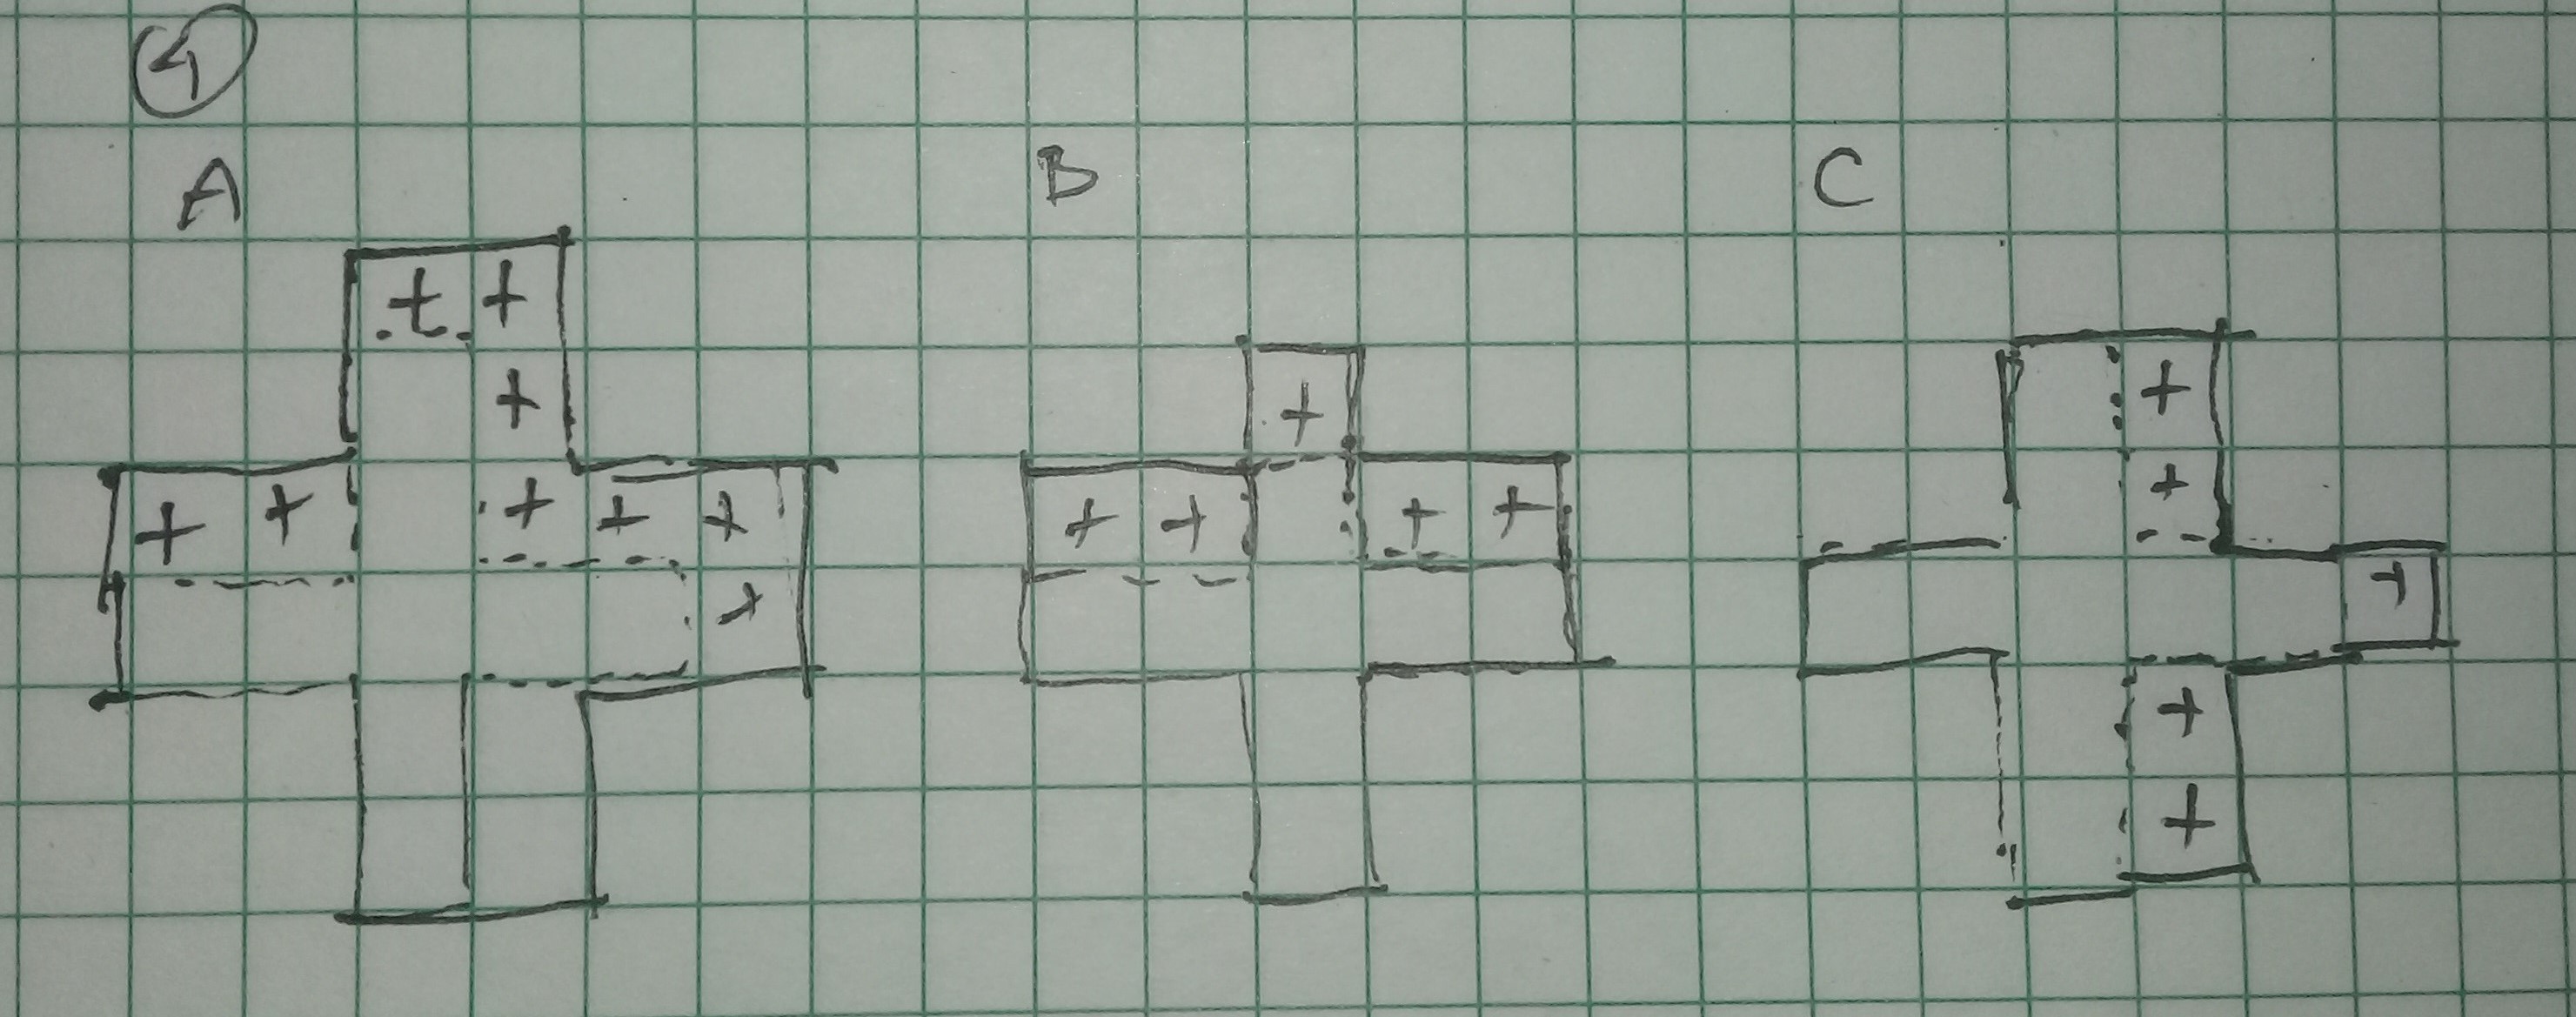 4
A B C
+ +
+ + +
+
+ + + + + + + + + +
+ +
+
+